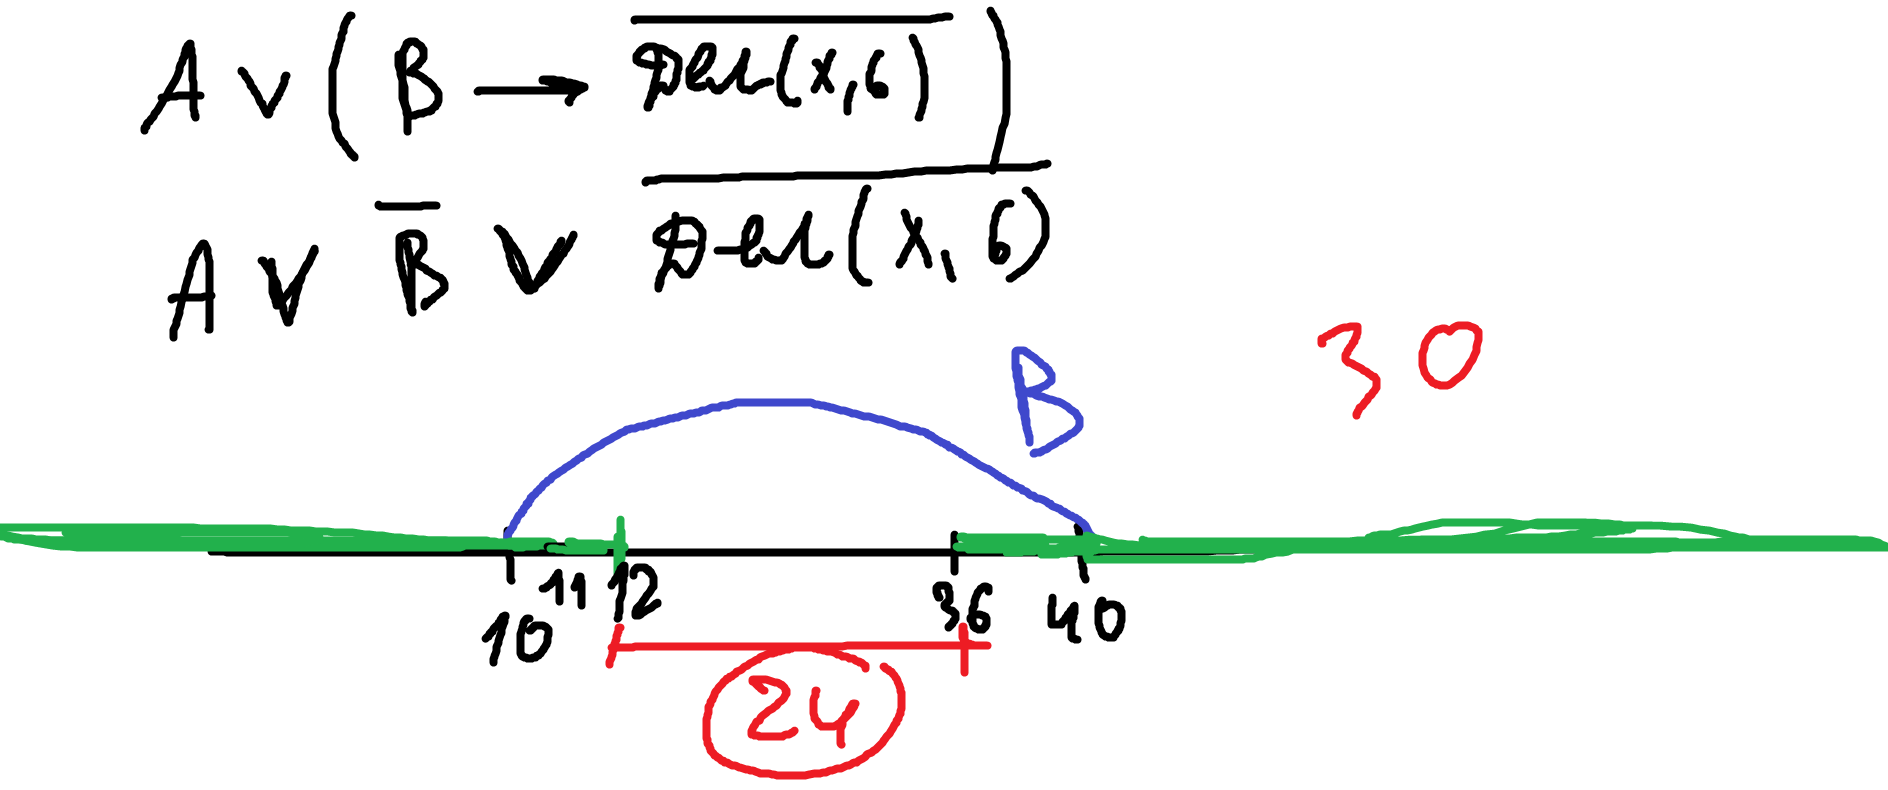 A ∨ ( B → \overline{Дел(x,6)} )
A ∨ \overline{B} ∨ \overline{Дел(x,6)}
30
B
10 11 12 36 40
24